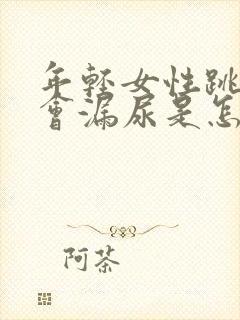 年轻女性跳
會漏尿是怎
阿茶